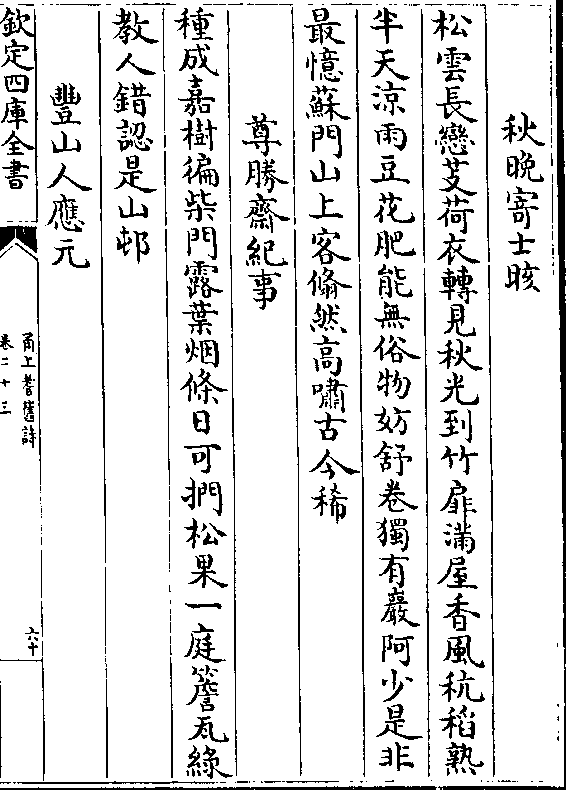 秋晚寄士晐
松雲長戀芰荷衣轉見秋光到竹扉滿屋香風秔稻熟
半天涼雨豆花肥能無俗物妨舒卷獨有巖阿少是非
最憶蘇門山上客翛然高嘯古今稀
尊勝齋紀事
種成嘉樹徧柴門露葉烟條日可捫松果一庭簷瓦綠
教人錯認是山邨
豐山人應元
欽定四庫全書
甬上耆舊詩
卷二十三
六十